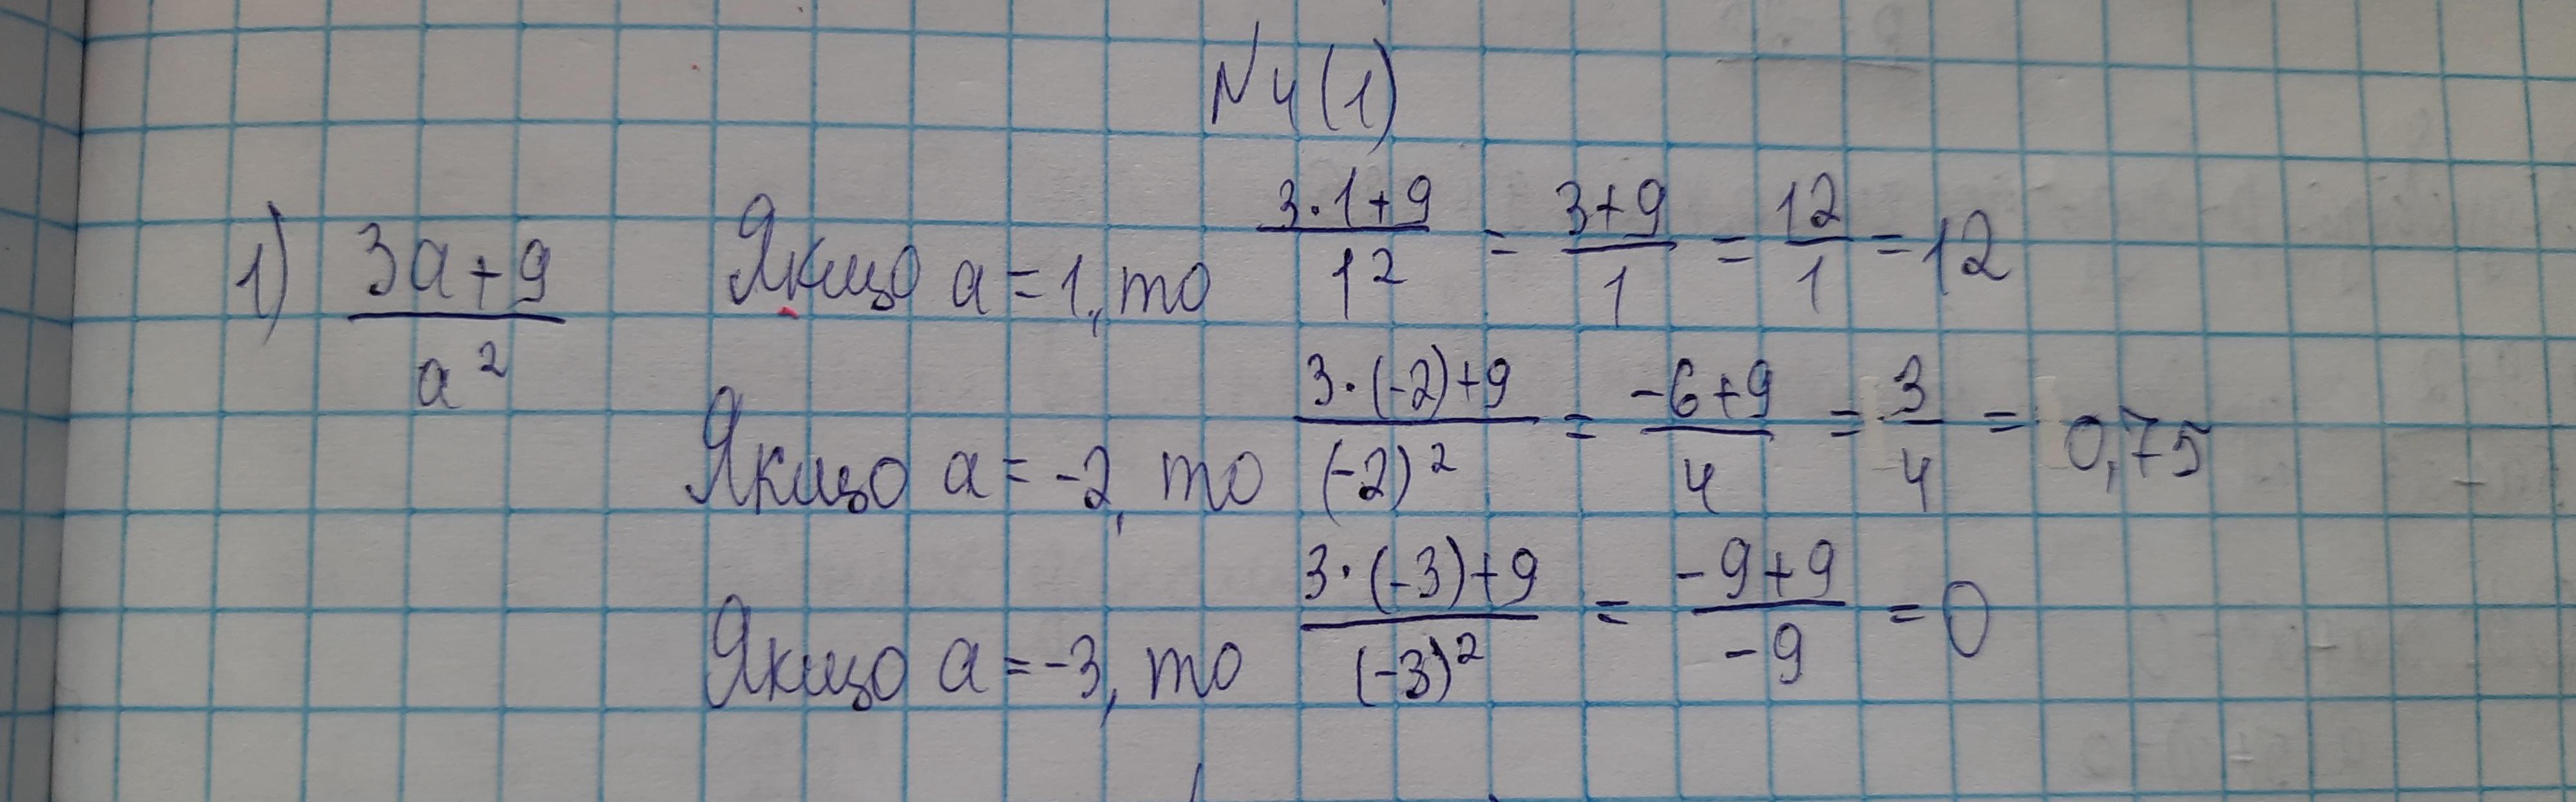 N4(1)
1) (3a+9)/a² Якщо a=1, то (3·1+9)/1² = (3+9)/1 = 12/1 = 12
Якщо a=-2, то (3·(-2)+9)/(-2)² = (-6+9)/4 = 3/4 = 0,75
Якщо a=-3, то (3·(-3)+9)/(-3)² = (-9+9)/-9 = 0